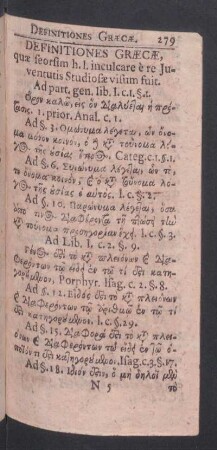 DEFINITIONES GRÆCÆ. 279
DEFINITIONES GRÆCÆ,
quæ seorsim h. l. inculcare è re Ju-
ventutis Studiosæ visum fuit.
Ad part. gen. lib. I. c. 1. §. 1.
Ὅρον καλῶ, εἰς ὃν διαλύεται ἡ πρό-
τασις. 1. prior. Anal. c. 1.
Ad §. 3. Ὁμώνυμα λέγεται, ὧν ὄνο-
μα μόνον κοινὸν, ὁ δὲ κτ τοὔνομα λό-
γος τῆς οὐσίας ἕτερος. Categ. c. 1. §. 1.
Ad §. 6. Συνώνυμα λέγεται, ὧν τὸ
ὄνομα κοινὸν, καὶ ὁ κτ τοὔνομα λό-
γος τῆς οὐσίας ὁ αὐτός. l. c. §. 2.
Ad §. 10. Παρώνυμα λέγεται, ὅσα
ἀπό τινος διαφέροντα τῇ πτώσει τὴν
κτ τοὔνομα προσηγορίαν ἔχῃ. l. c. §. 3.
Ad Lib. I. c. 2. §. 9.
Γένος τὸ κτ πλειόνων καὶ δια-
φερόντων τῷ εἴδει ἐν τῷ τί ἐστι κατη-
γορούμενον. Porphyr. Isag. c. 2. §. 8.
Ad §. 12. Εἶδος ἐστὶ τὸ κτ πλειόνων
καὶ διαφερόντων τῷ ἀριθμῷ ἐν τῷ τί
ἐστι κατηγορούμενον. l. c. §. 29.
Ad §. 15. Διαφορὰ ἐστὶ τὸ κτ πλειό-
νων καὶ διαφερόντων τῷ εἴδει ἐν τῷ ὁ-
ποῖόν τι ἐστὶ κατηγορούμενον. Isag. c. 3. §. 17.
Ad §. 18. Ἴδιον ἐστιν, ὃ μὴ δηλοῖ μὲν
N 5 τὸ